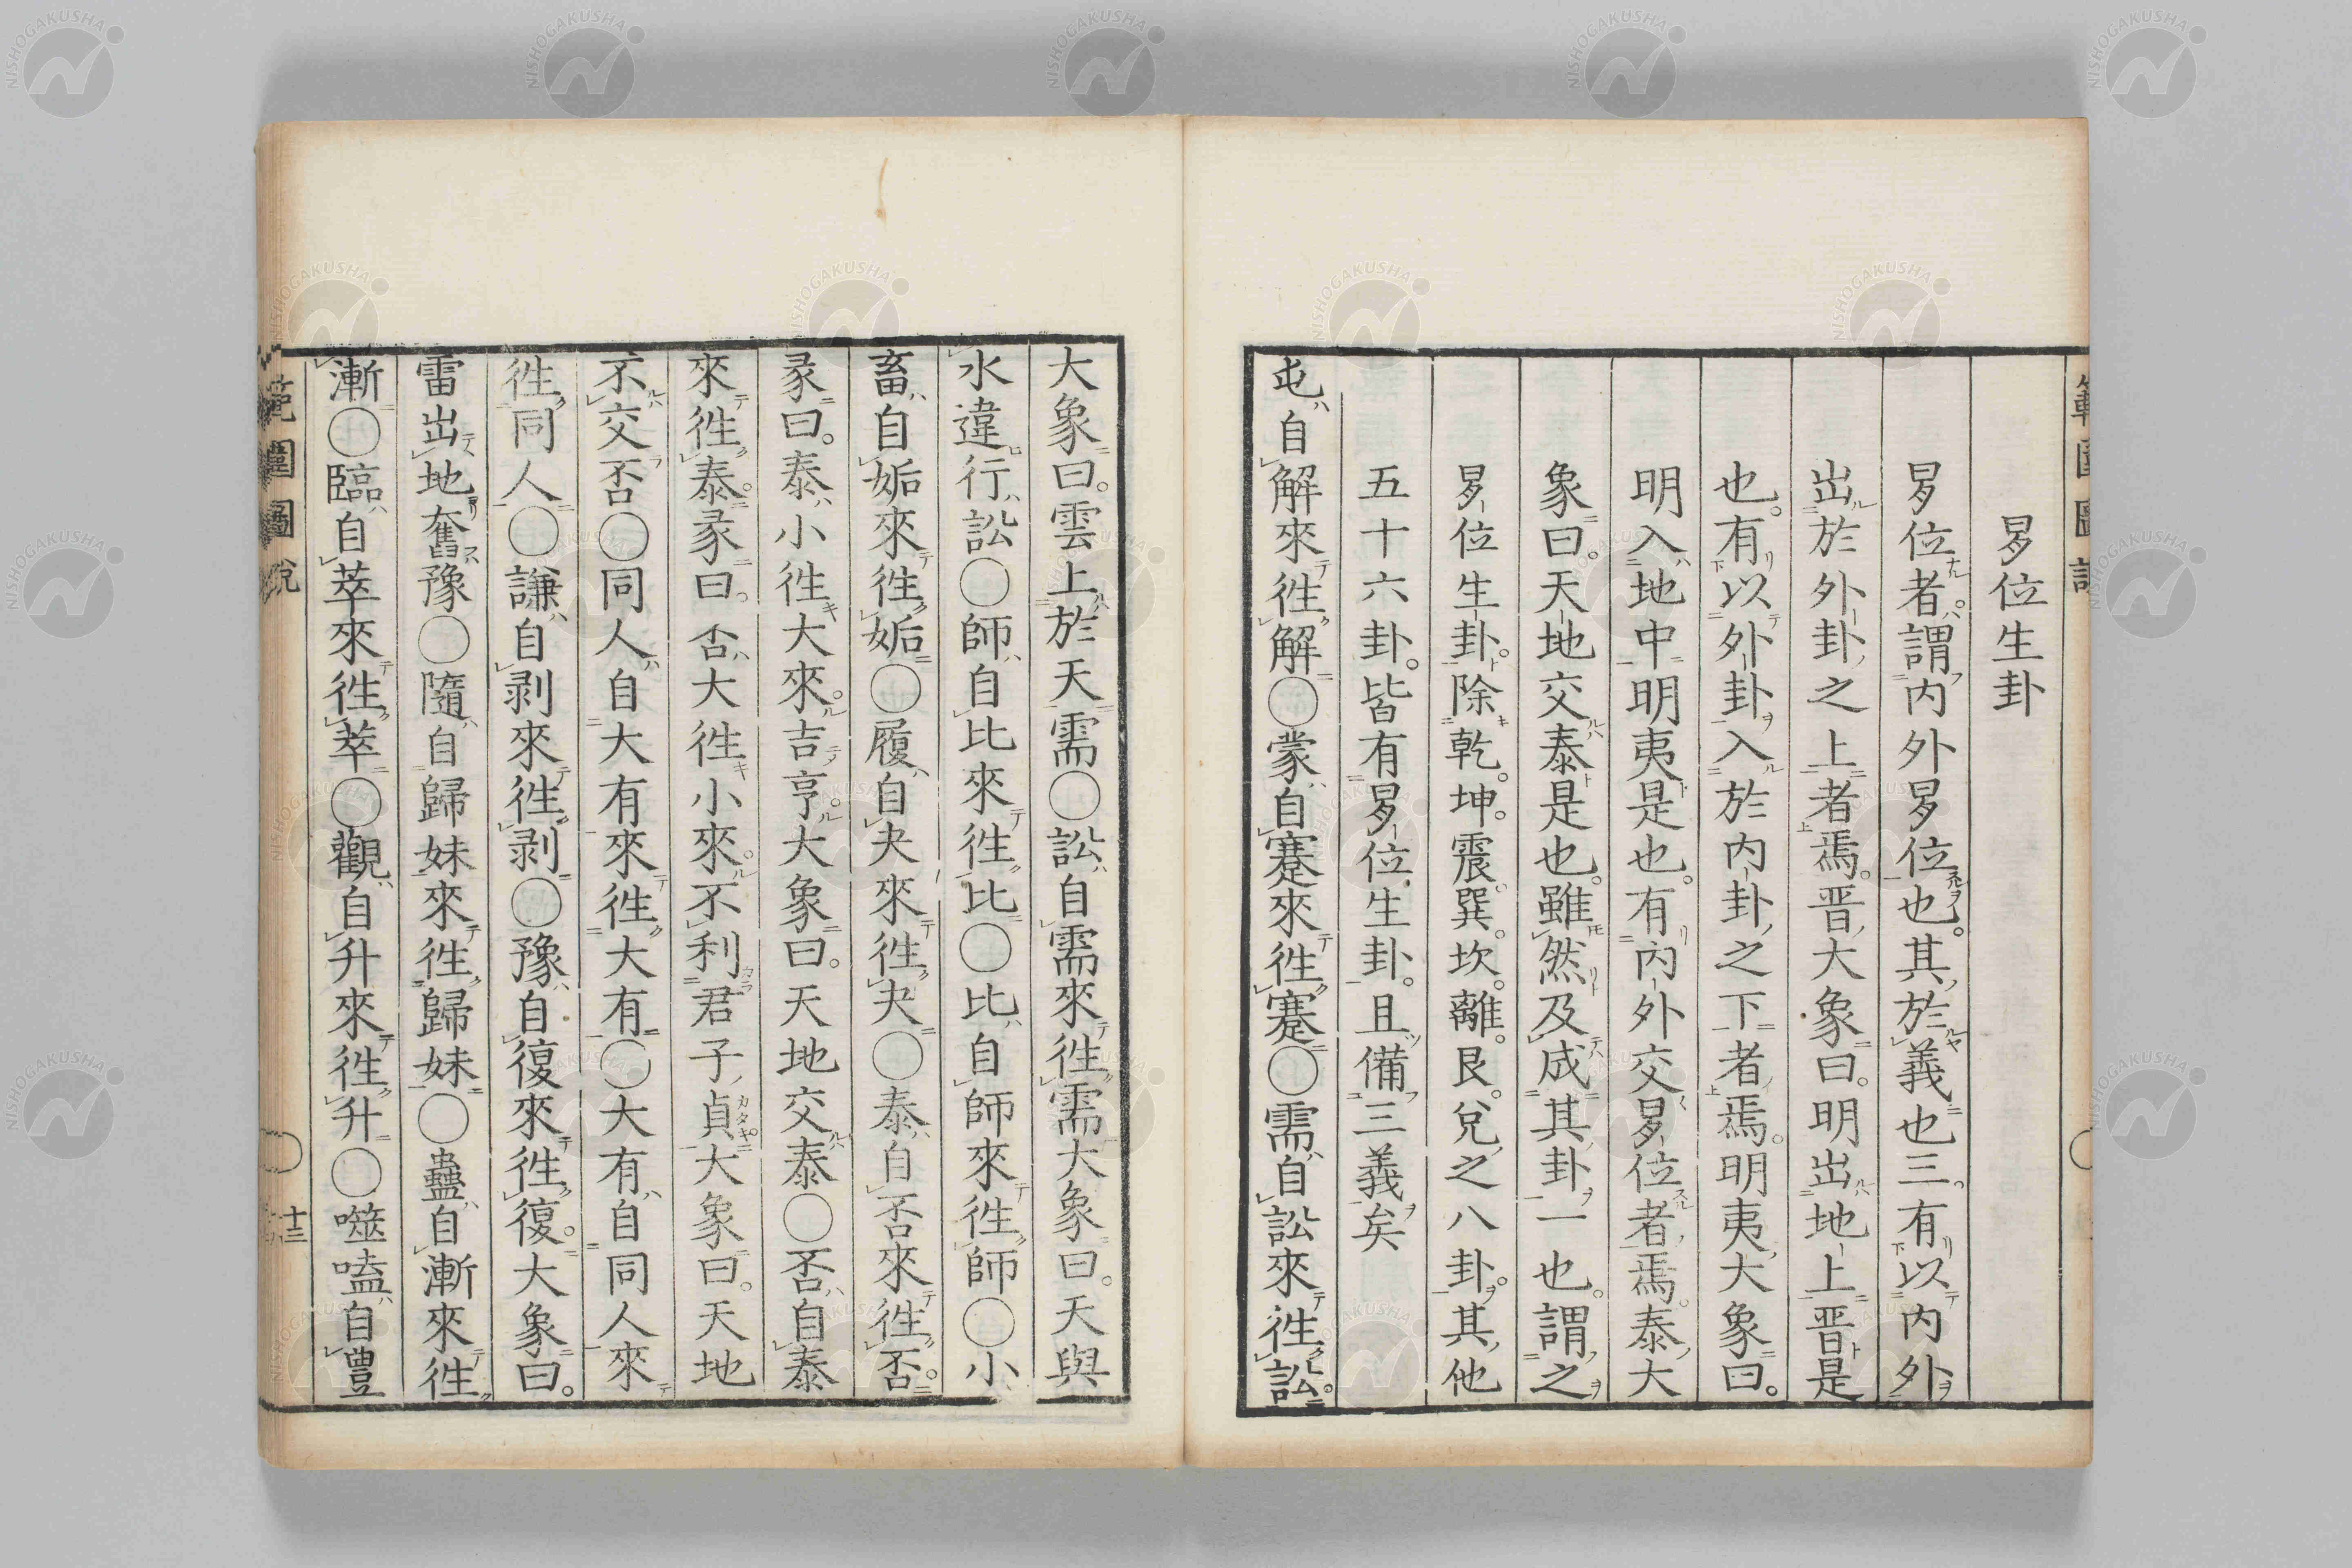 範圍圖說
易位生卦
易位者。謂內外易位也。其於義也三。有以內外
出於外卦之上者焉。晋大象曰。明出地上晋是
也。有以外卦入於內卦之下者焉。明夷大象曰。
明入地中明夷是也。有內外交易位者焉。泰大
象曰。天地交泰是也。雖然及成其卦一也。謂之
易位生卦。除乾。坤。震。巽。坎。離。艮。兌之八卦。其他
五十六卦。皆有易位生卦。且備三義矣
屯自解來徃解○蒙自蹇來徃蹇○需自訟來徃訟。
大象曰。雲上於天需○訟自需來徃需大象曰。天與
水違行訟○師自比來徃比○比自師來徃師○小
畜自姤來徃姤○履自夬來徃夬○泰自否來徃否。
彖曰。泰小徃大來。吉亨。大象曰。天地交泰○否自泰
來徃泰。彖曰。否大徃小來。不利君子貞大象曰。天地
不交否○同人自大有來徃大有○大有自同人來
徃同人○謙自剥來徃剥○豫自復來徃復。大象曰。
雷出地奮豫○隨自歸妹來徃歸妹○蠱自漸來徃
漸○臨自萃來徃萃○觀自升來徃升○噬嗑自豊
範圍圖說
十三